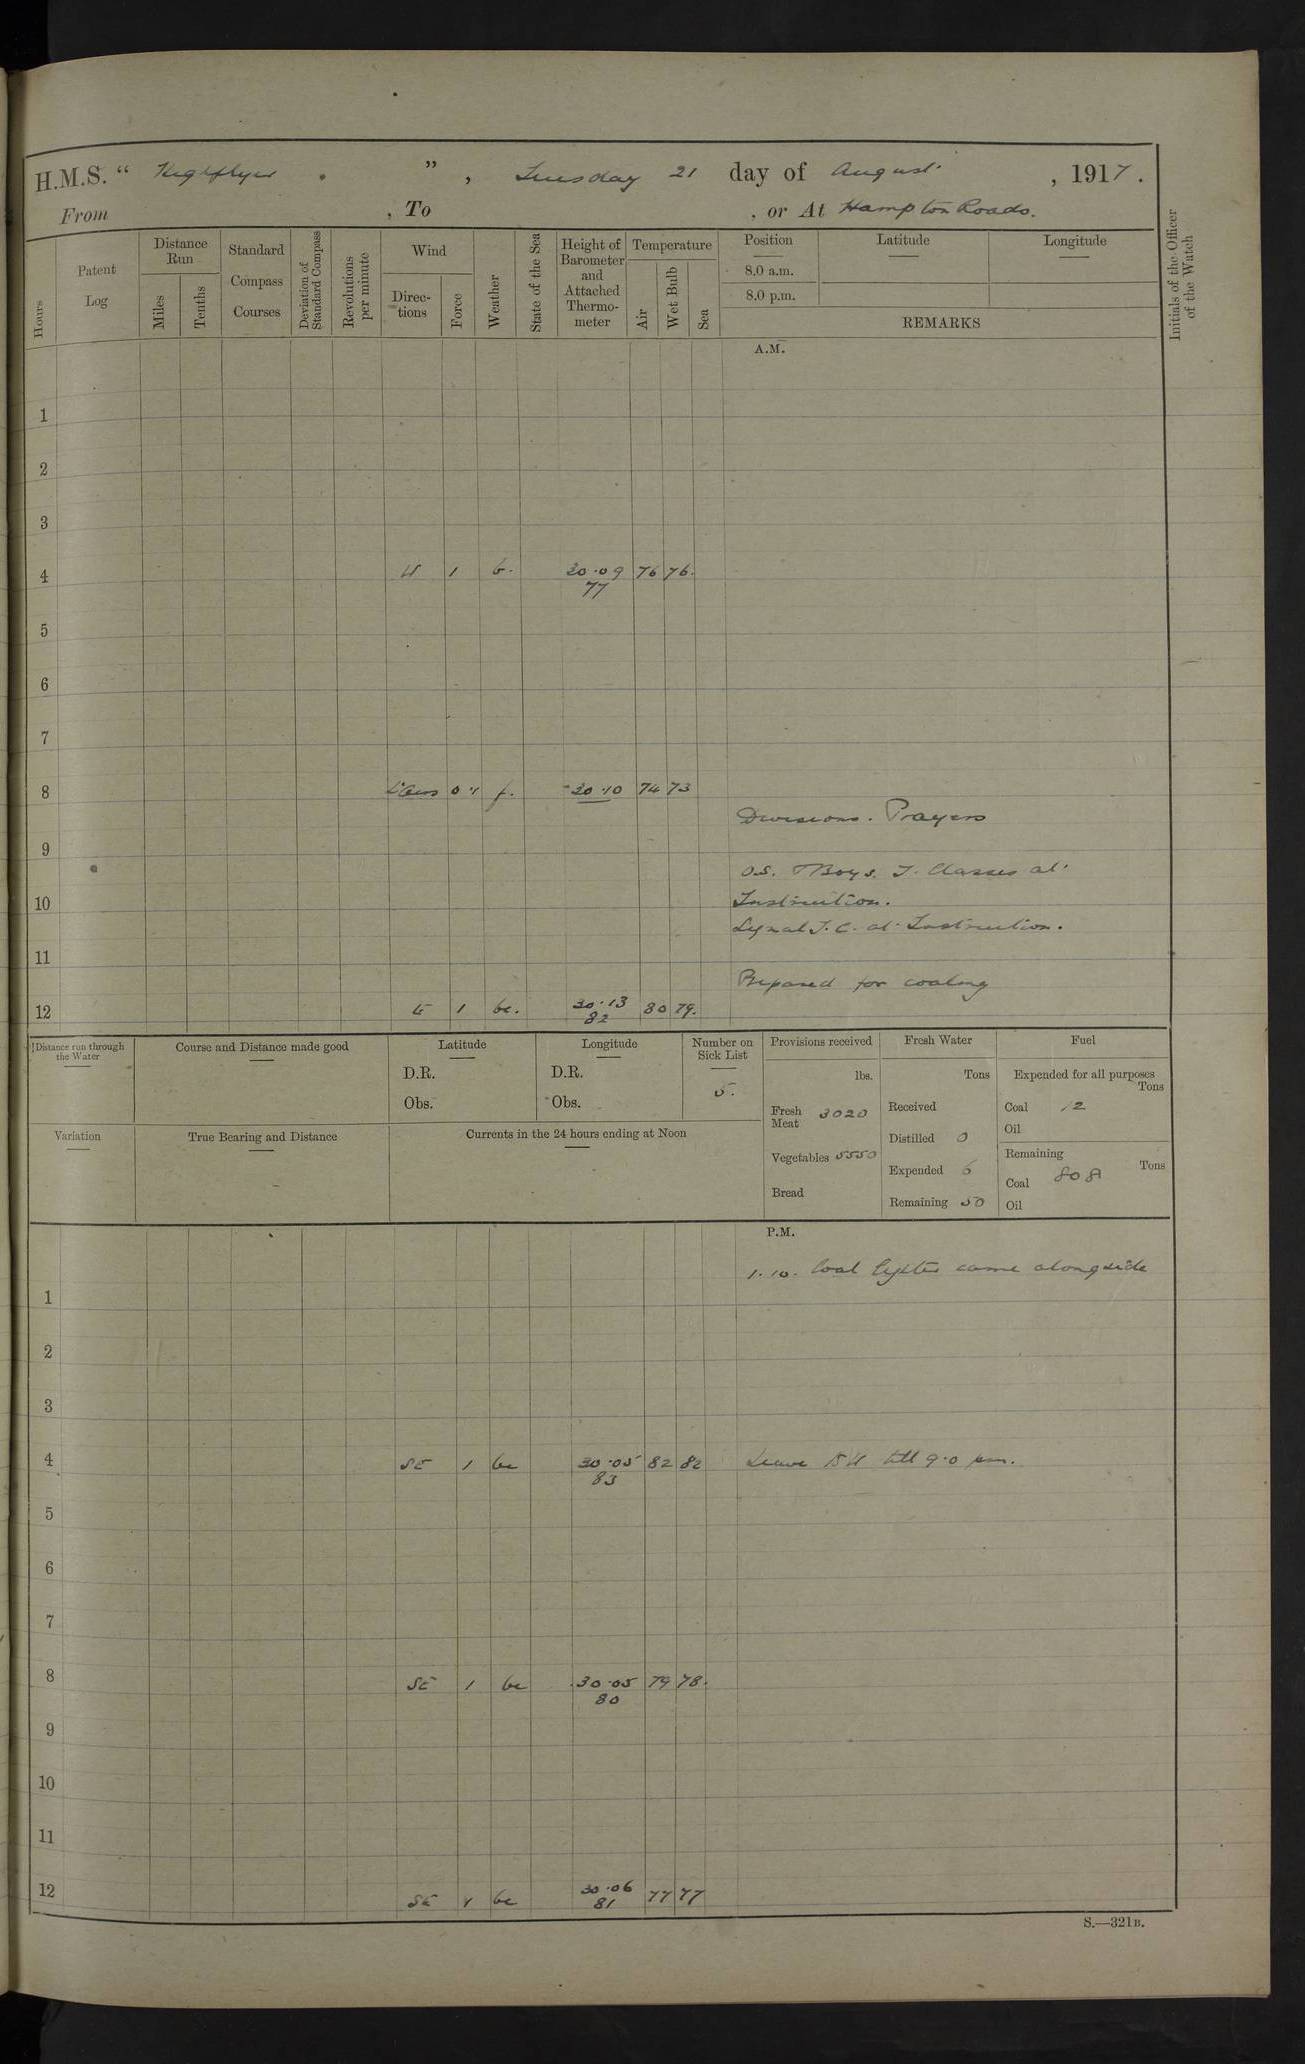 H.M.S. " Highflyer . " , Tuesday 21 day of August , 1917 .
From , To , or At Hampton Roads.
Hours
Patent Log
Distance Run
Miles
Tenths
Standard Compass Courses
Deviation of Standard Compass
Revolutions per minute
Wind
Direc-tions
Force
Weather
State of the Sea
Height of Barometer and Attached Thermo-meter
Temperature
Air
Wet Bulb
Sea
Position
8.0 a.m.
8.0 p.m.
Latitude
Longitude
REMARKS
Initials of the Officer of the Watch
A.M.
1
2
3
4 W 1 b. 30.09 76 76.
77
5
6
7
8 0.1 f. 30.10 74 73
Divisions. Prayers
9
O.S. Boys. T. Classes at
10 Instruction.
Signal T.C. at Instruction.
11
Prepared for coaling
12 E 1 bc. 30.13 80 79.
82
Distance run through the Water
Course and Distance made good
Latitude
D.R.
Obs.
Longitude
D.R.
Obs.
Number on Sick List
5.
Provisions received
lbs.
Fresh Meat 3020
Vegetables 5550
Bread
Fresh Water
Tons
Received
Distilled 0
Expended 6
Remaining 50
Fuel
Expended for all purposes
Tons
Coal 12
Oil
Remaining
Tons
Coal 808
Oil
Variation
True Bearing and Distance
Currents in the 24 hours ending at Noon
P.M.
1.10. Coal lighter came alongside
1
2
3
4 SE 1 bc 30.05 82 82 Leave till 9.0 pm.
83
5
6
7
8 SE 1 bc 30.05 79 78.
80
9
10
11
12 SE 1 bc 30.06 77 77
81
S.—321B.